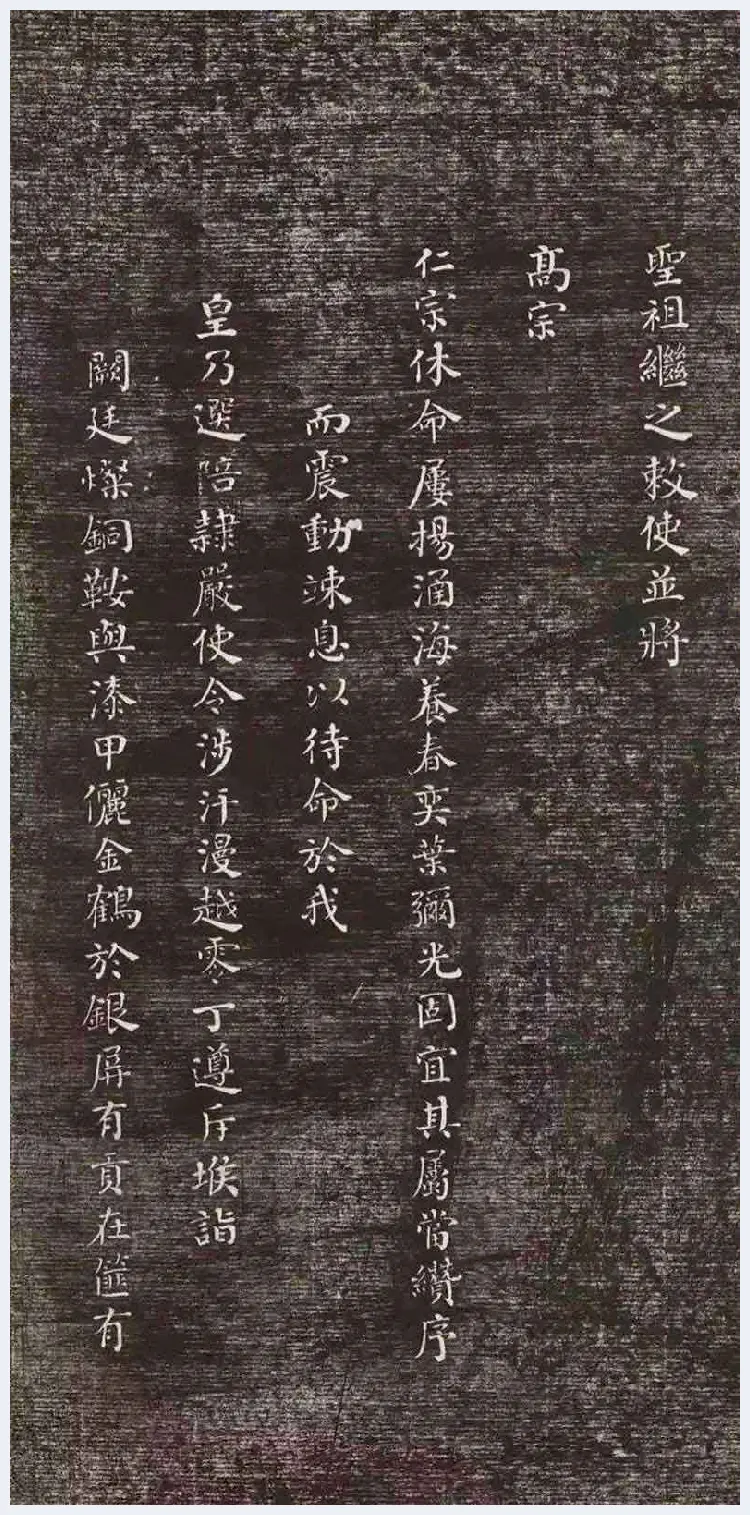 聖祖繼之敕使並將
高宗
仁宗休命屢揚涵海養春奕葉彌光固宜其屬當纘序
而震動竦息以待命於我
皇乃選陪隸嚴使令涉汗漫越零丁遵斥堠詣
闕廷燦銅鞍與漆甲儷金鶴於銀屏有貢在篚有